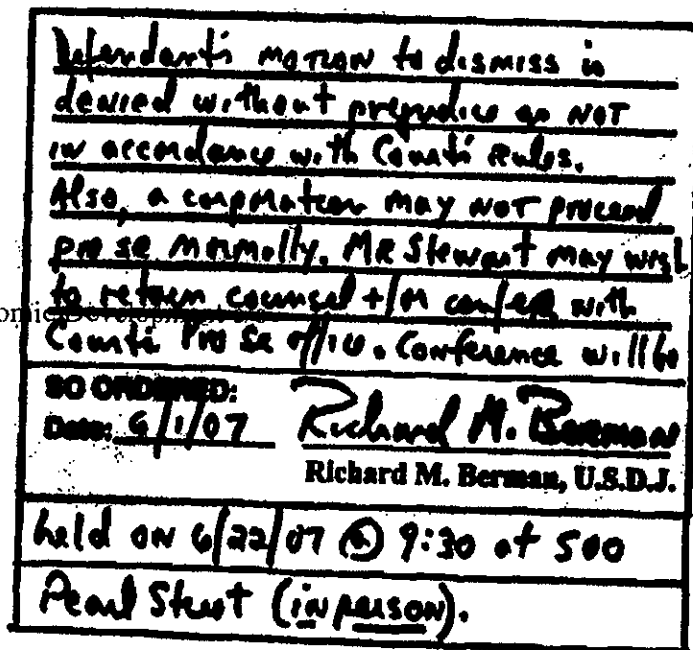 Defendant's motion to dismiss is
denied without prejudice as NOT
in accordance with Court's Rules.
Also, a corporation may NOT proceed
pro se normally. Mr Stewart may wish
to retain counsel +/or confer with
Court's Pro Se office. Conference will be
SO ORDERED:
Date: 6/1/07 Richard M. Berman
Richard M. Berman, U.S.D.J.
held on 6/22/07 @ 9:30 at 500
Pearl Street (in person).